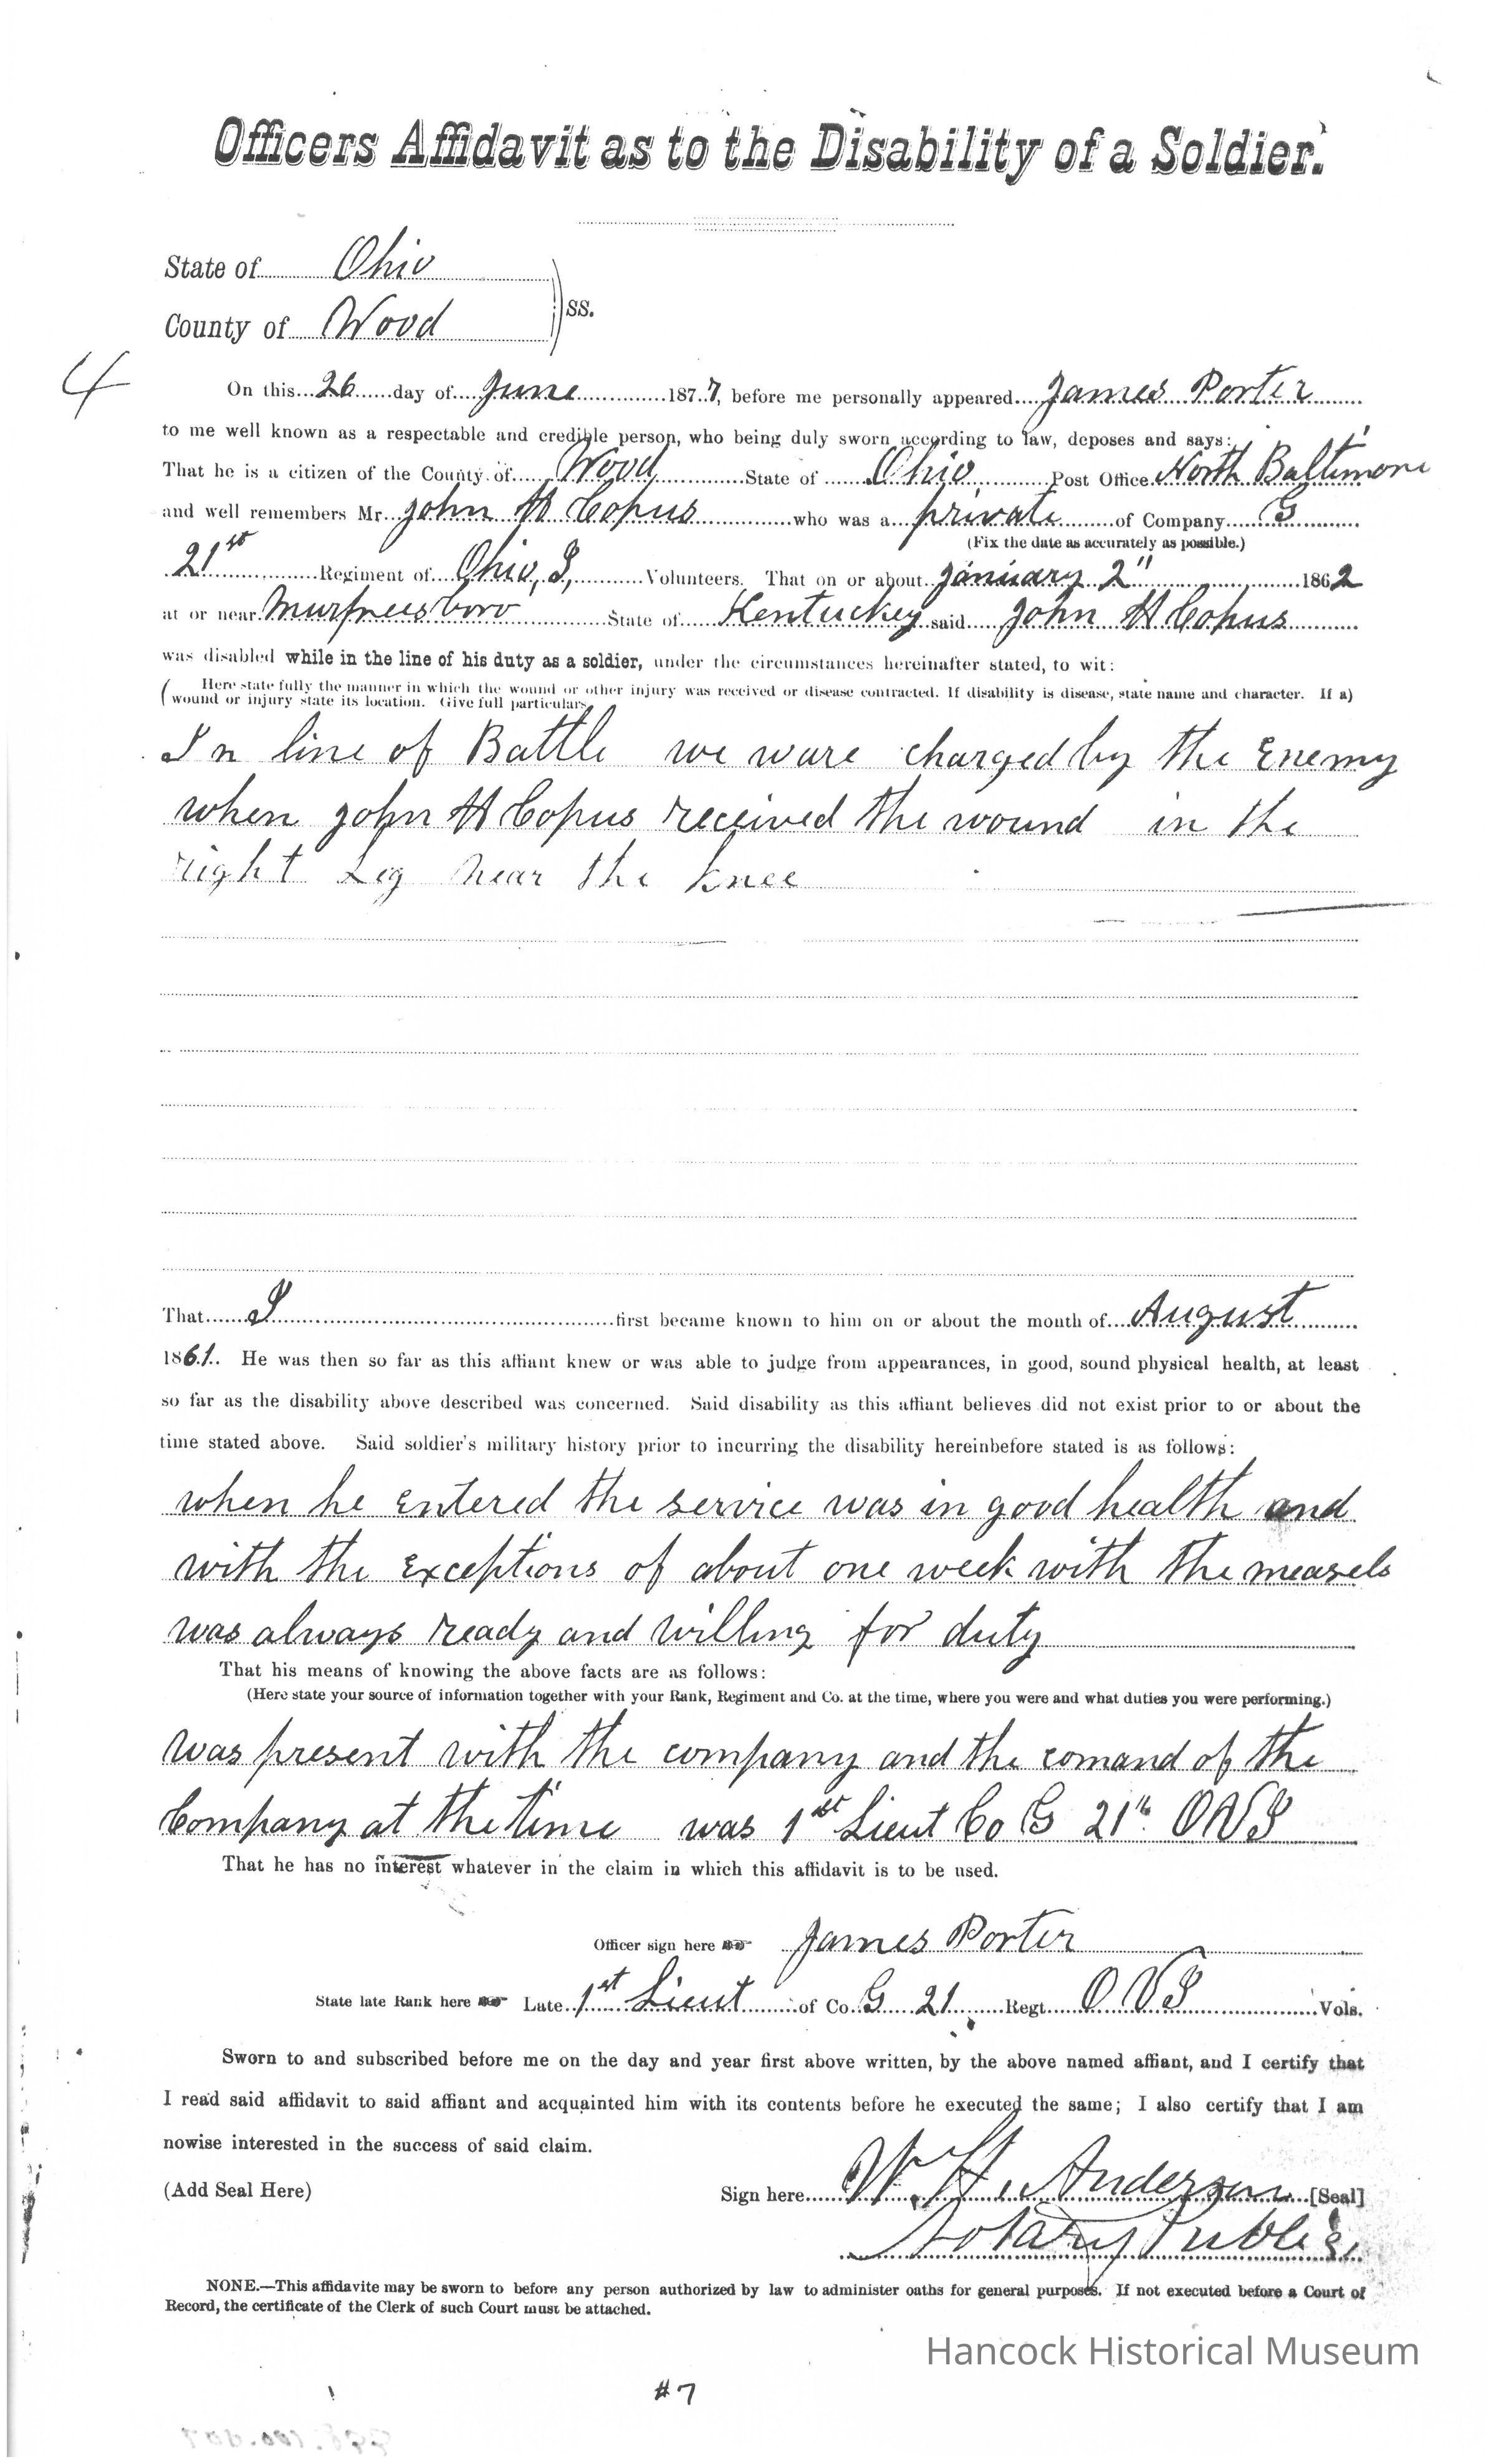 Officers Affidavit as to the Disability of a Soldier.
State of Ohio
County of Wood
ss.
4
On this 26 day of June 1877, before me personally appeared James Porter
to me well known as a respectable and credible person, who being duly sworn according to law, deposes and says:
That he is a citizen of the County of Wood State of Ohio Post Office North Baltimore
and well remembers Mr. John H Copus who was a private of Company G
(Fix the date as accurately as possible.)
21st Regiment of Ohio, I, Volunteers. That on or about January 2" 1862
at or near Murfreesboro State of Kentucky said John H Copus
was disabled while in the line of his duty as a soldier, under the circumstances hereinafter stated, to wit:
( Here state fully the manner in which the wound or other injury was received or disease contracted. If disability is disease, state name and character. If a)
wound or injury state its location. Give full particulars.
In line of Battle we ware charged by the Enemy
when John H Copus received the wound in the
right Leg near the knee
That I first became known to him on or about the month of August
1861. He was then so far as this affiant knew or was able to judge from appearances, in good, sound physical health, at least
so far as the disability above described was concerned. Said disability as this affiant believes did not exist prior to or about the
time stated above. Said soldier's military history prior to incurring the disability hereinbefore stated is as follows:
when he entered the service was in good health and
with the exceptions of about one week with the measels
was always ready and willing for duty
That his means of knowing the above facts are as follows:
(Here state your source of information together with your Rank, Regiment and Co. at the time, where you were and what duties you were performing.)
was present with the company and the comand of the
Company at the time was 1st Lieut Co G 21th OVI
That he has no interest whatever in the claim in which this affidavit is to be used.
Officer sign here James Porter
State late Rank here Late 1st Lieut of Co. G 21 Regt. OVI Vols.
Sworn to and subscribed before me on the day and year first above written, by the above named affiant, and I certify that
I read said affidavit to said affiant and acquainted him with its contents before he executed the same; I also certify that I am
nowise interested in the success of said claim.
(Add Seal Here) Sign here W. H. Anderson [Seal]
Notary Public
NONE.—This affidavite may be sworn to before any person authorized by law to administer oaths for general purposes. If not executed before a Court of
Record, the certificate of the Clerk of such Court must be attached.
Hancock Historical Museum
#7